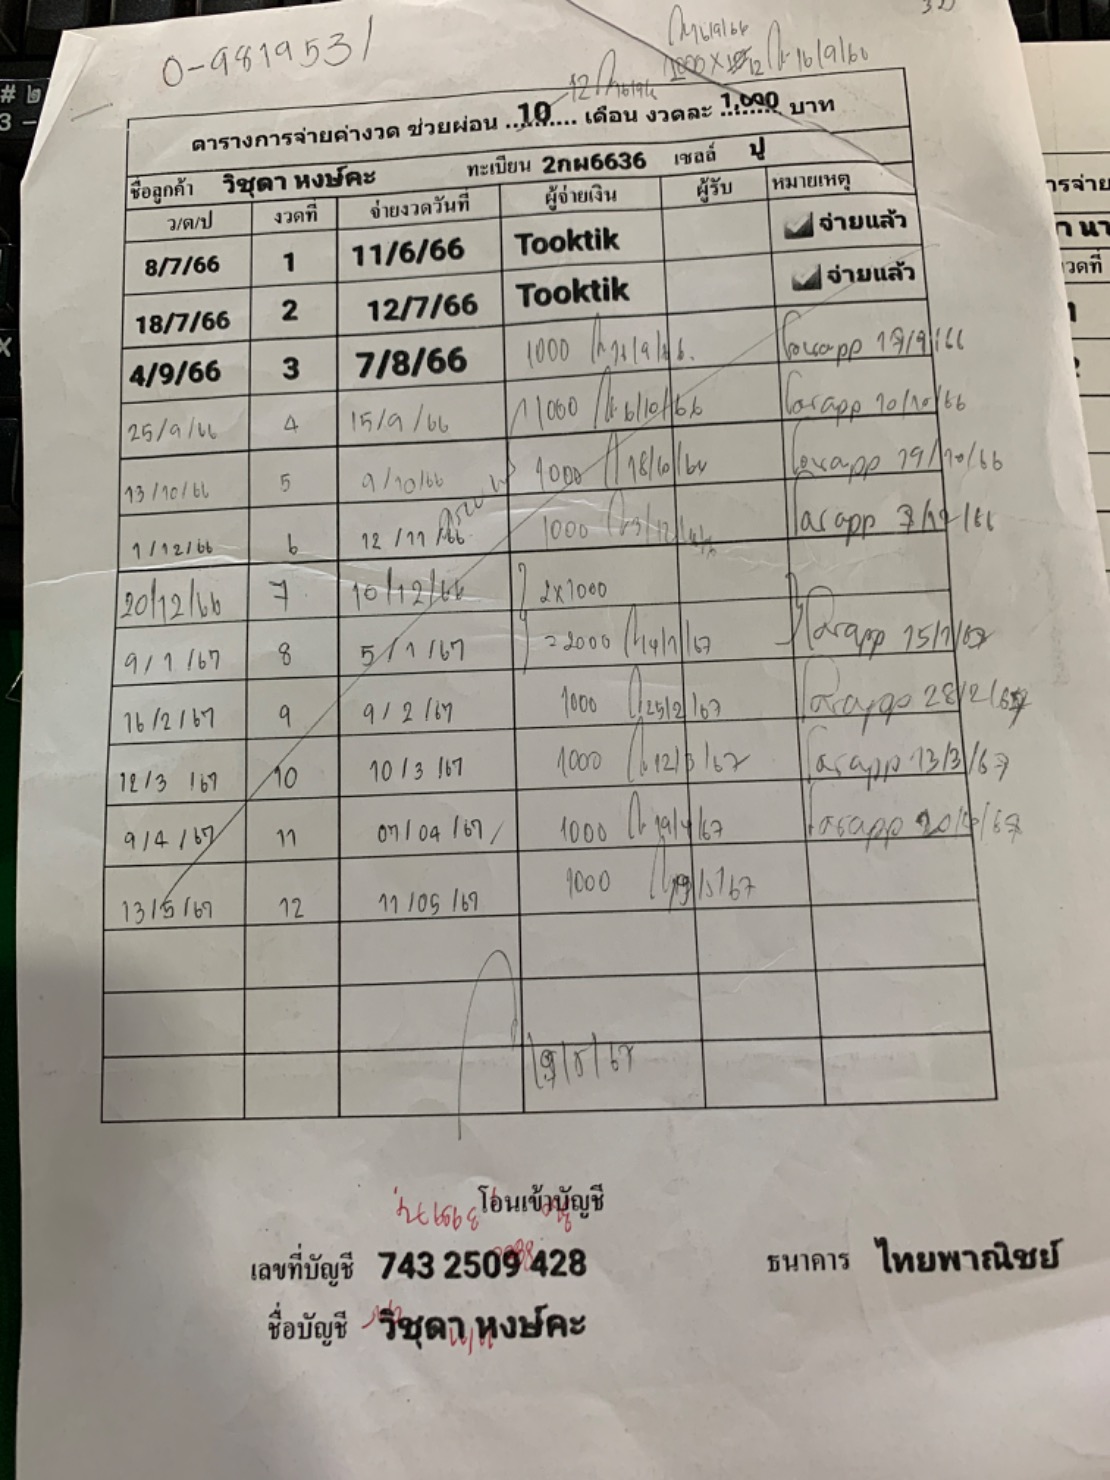 0-9819531
16/9/66
12
1000 X 12 16/9/66
ตารางการจ่ายค่างวด ช่วยผ่อน ...10... เดือน งวดละ ...1,000... บาท
ชื่อลูกค้า วิชุดา หงษ์คะ ทะเบียน 2กผ6636 เซลล์ ปู
ว/ด/ป งวดที่ จ่ายงวดวันที่ ผู้จ่ายเงิน ผู้รับ หมายเหตุ
8/7/66 1 11/6/66 Tooktik จ่ายแล้ว
18/7/66 2 12/7/66 Tooktik จ่ายแล้ว
4/9/66 3 7/8/66 1000
25/9/66 4 15/9/66 1000 6/10/66 10/10/66
13/10/66 5 9/10/66 1000 18/10/66 19/10/66
1/12/66 6 12/11/66 1000 7/12/66
20/12/66 7 10/12/66 2x1000
9/1/67 8 5/1/67 = 2000 14/1/67 15/1/67
16/2/67 9 9/2/67 1000 25/2/67 28/2/67
12/3/67 10 10/3/67 1000 12/3/67 13/3/67
9/4/67 11 07/04/67 1000 19/4/67 20/4/67
13/5/67 12 11/05/67 1000 19/5/67
19/5/67
โอนเข้าบัญชี
เลขที่บัญชี 743 2509 428 ธนาคาร ไทยพาณิชย์
ชื่อบัญชี วิชุดา หงษ์คะ